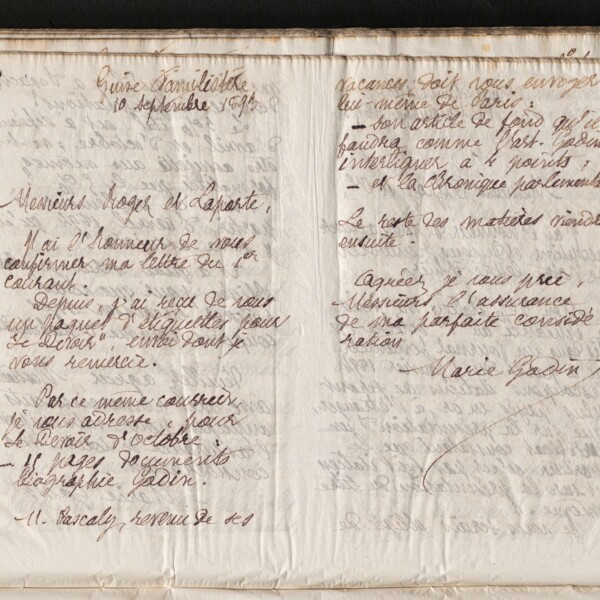 Guise Familistère
10 septembre 1893
Messieurs Roger et Laporte,
J'ai l'honneur de vous
confirmer ma lettre du 1er
courant.
Depuis, j'ai reçu de vous
un paquet d'étiquettes pour
"Le Devoir" envoi dont je
vous remercie.
Par ce même courrier,
je vous adresse, pour
Le Devoir d'octobre :
- 15 pages documents
biographie Godin.
M. Pascaly, revenu de ses
vacances doit vous envoyer
lui-même de Paris :
- son article de fond qu'il
faudra, comme l'art. Godin
interligner à 4 points ;
- et la Chronique parlementa
Le reste des matières viendra
ensuite.
Agréez, je vous prie,
Messieurs, l'assurance
de ma parfaite considé
ration
Marie Godin